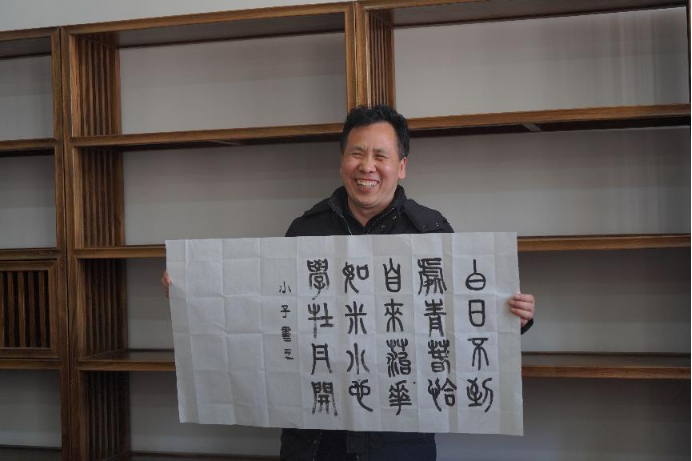 白日不到
處青春恰
自來菭華
如米小也
學牡丹開
小子書之